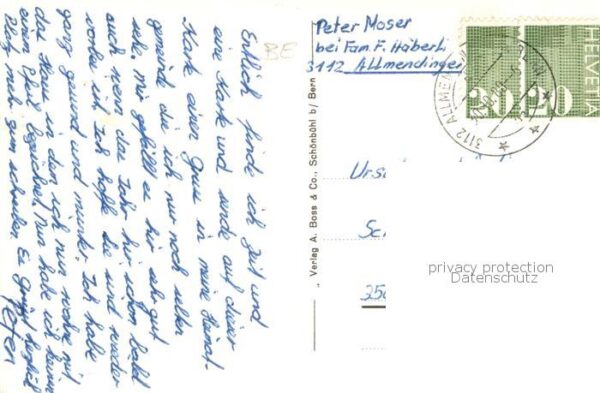 Endlich finde ich Zeit und
eine Karte und sende auf dieser
Karte einen Gruss in meine Heimat-
gemeinde die ich nur noch selten
sehe, mir gefällt es hier sehr gut
auch wenn das Jahr hier schon bald
vorbei ist. Ich hoffe sie sind wieder
ganz gesund und munter. Ich habe
das Haus in dem ich nun wohne mit
einem Pfeil bezeichnet, Nun habe ich keinen
Platz mehr zum schreiben. Es grüsst herzlich
Peter
BE
Verlag A. Boss & Co., Schönbühl b/ Bern
Peter Moser
bei Fam. F. Häberli
3112 Allmendingen
HELVETIA
20
20
3112 ALLMEN
Urs
Sc
250
privacy protection
Datenschutz